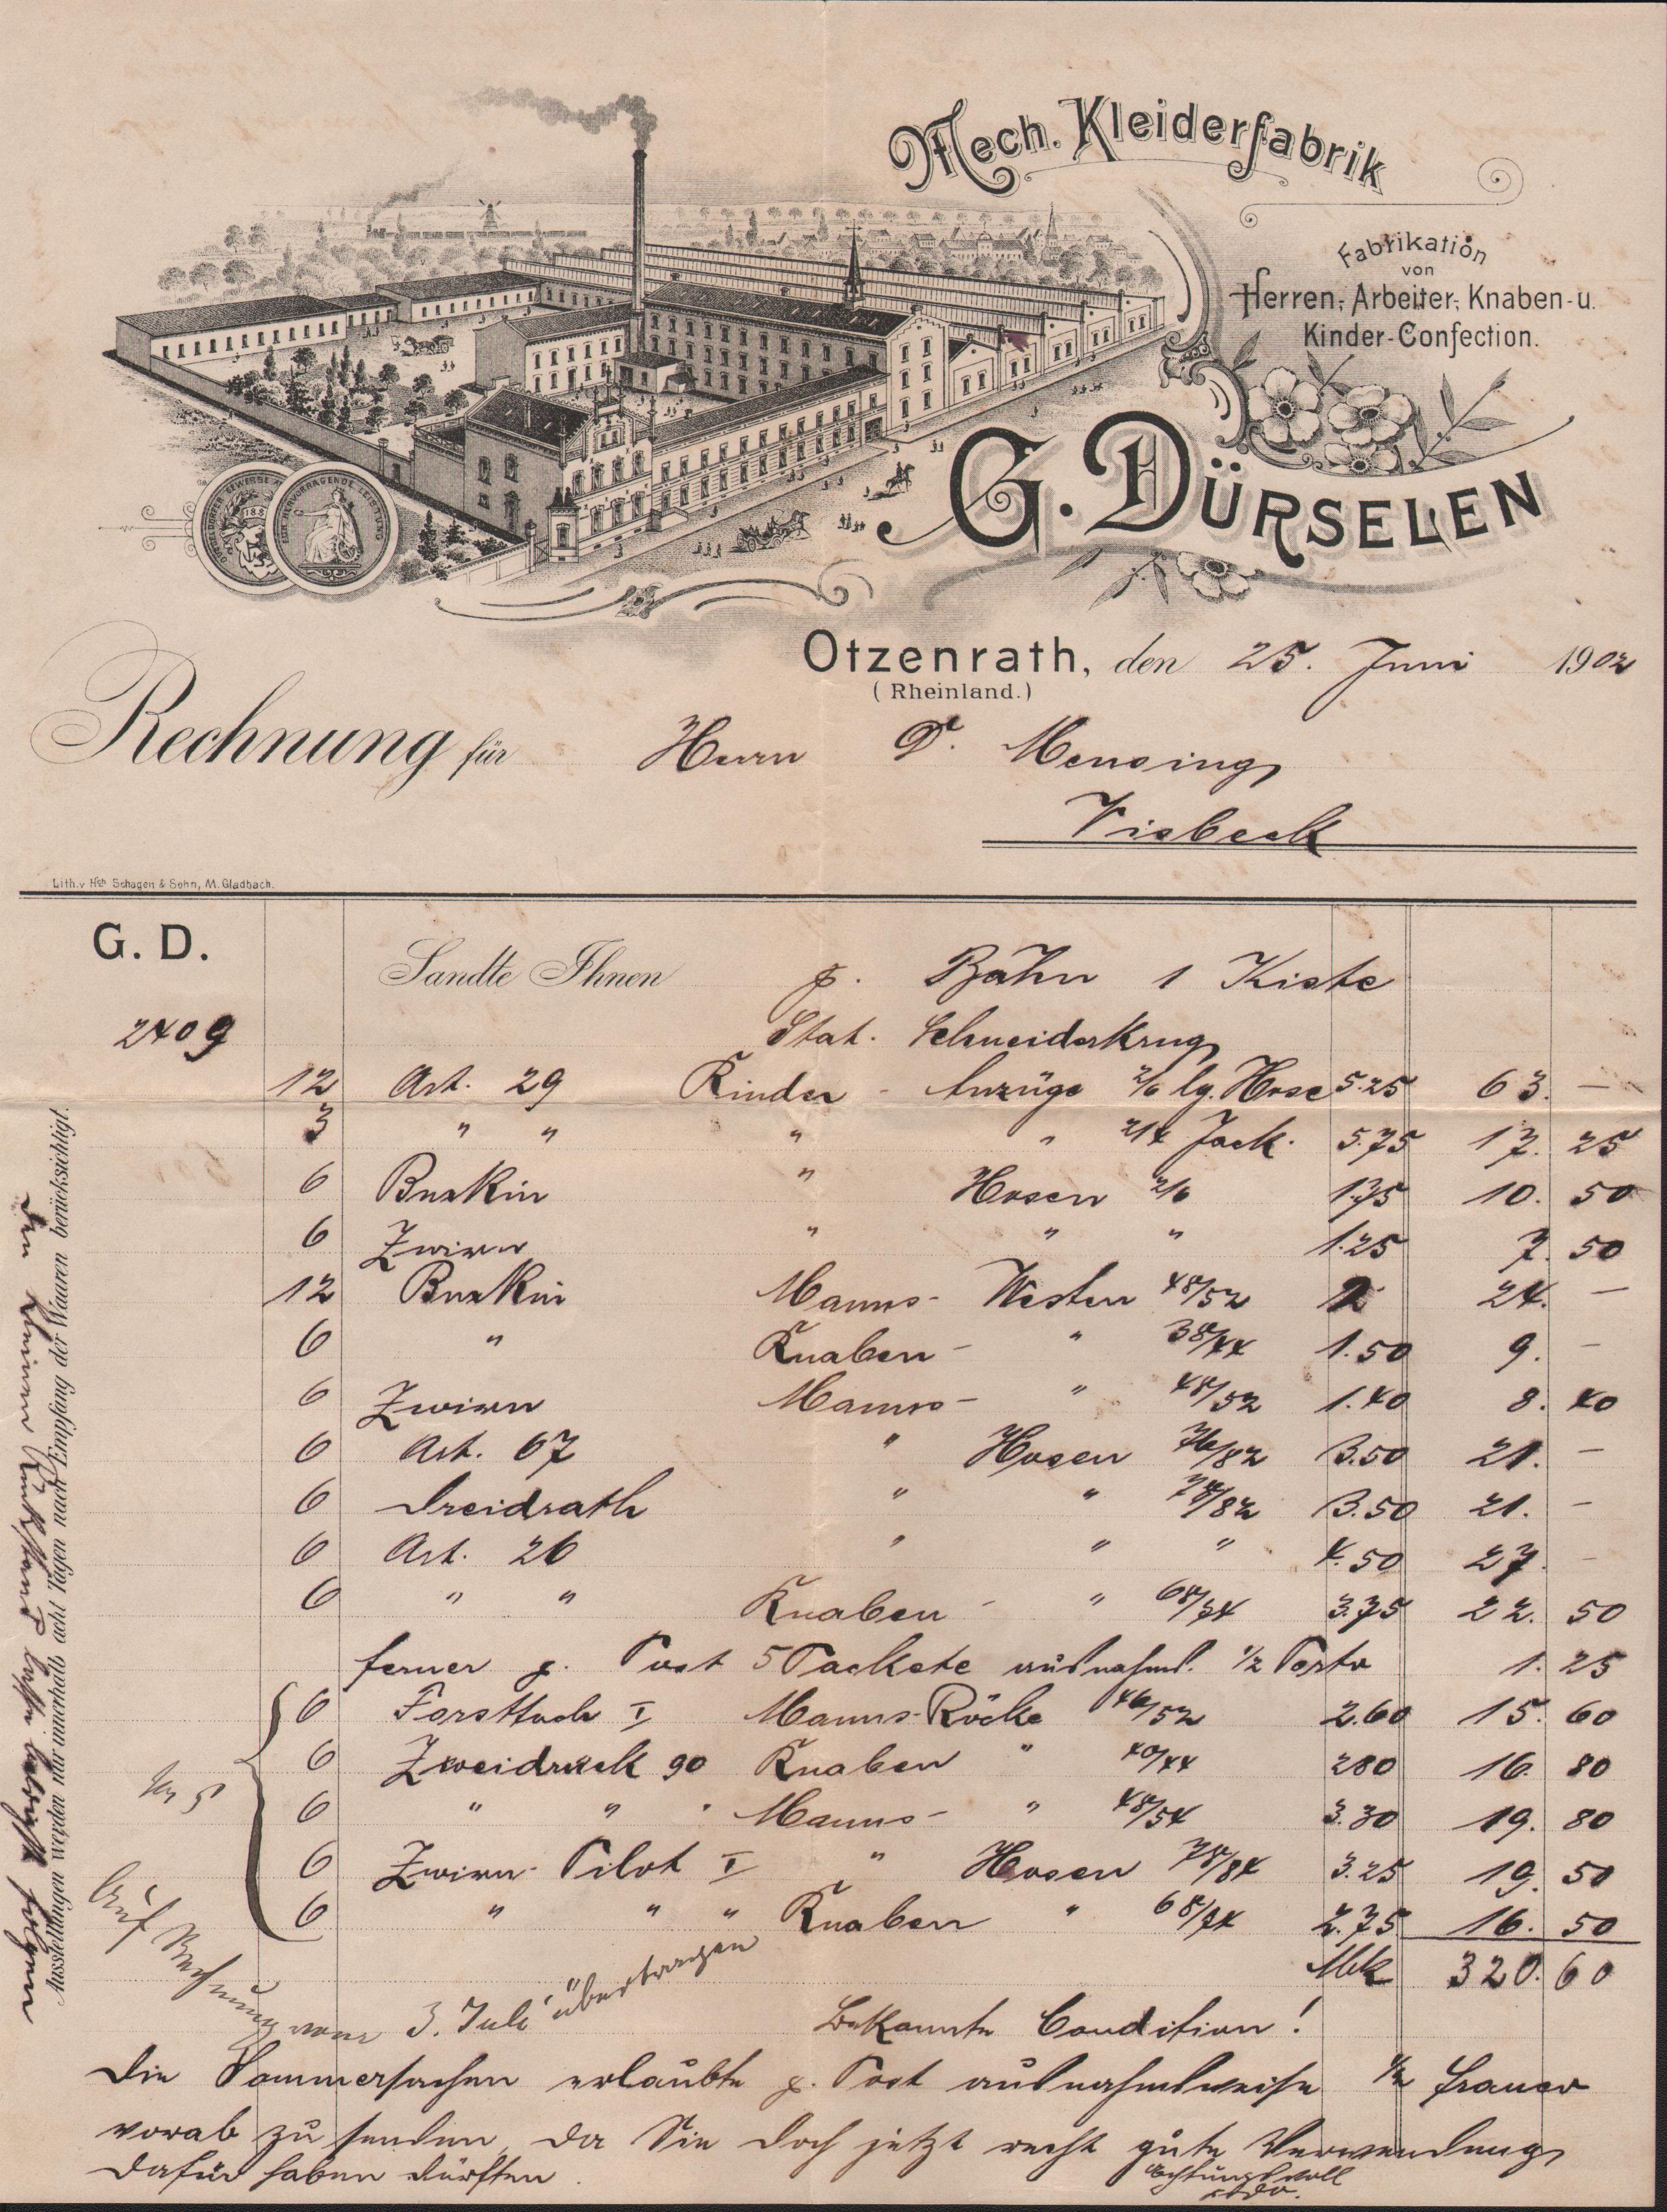 Mech. Kleiderfabrik
Fabrikation
von
Herren-, Arbeiter-, Knaben- u.
Kinder-Confection.
G. DÜRSELEN
Otzenrath, den 25. Juni 1902
(Rheinland.)
Rechnung für Herrn D. Mensing
Visbeck
Lith. v. Hch. Schagen & Sohn, M. Gladbach.
G. D. Sandte Ihnen p. Bahn 1 Kiste
2409 Stat. Schneiderkrug
12 Art. 29 Kinder - Anzüge 2/6 lg. Hose 5.25 63. —
3 " " " " 2/4 Jack. 5.75 17. 25
6 Buxkin " Hosen 2/6 1.75 10. 50
6 Zwirn " " " 1.25 7. 50
12 Buxkin Manns- Westen 48/52 2 24. —
6 " Knaben- " 38/44 1.50 9. —
6 Zwirn Manns- " 48/52 1.40 8. 40
6 Art. 67 " Hosen 76/82 3.50 21. —
6 Dreidrath " " 78/82 3.50 21. —
6 Art. 26 " " " 4.50 27. —
6 " " Knaben - " 68/74 3.75 22. 50
ferner p. Post 5 Packete ausnahmsw. 1/2 Porto 1. 25
6 Forsttuch I Manns-Röcke 46/52 2.60 15. 60
6 Zweidruck 90 Knaben " 40/44 280 16. 80
6 " " " Manns- " 48/54 3.30 19. 80
6 Zwirn- Pilot I " Hosen 78/84 3.25 19. 50
6 " " " Knaben " 68/74 2.75 16. 50
Mk 320. 60
Auf Rechnung vom 3. Juli übertragen
Bekannte Condition!
Die Sommersachen erlaubte p. Post ausnahmsweise 1/2 franco
vorab zu senden, da Sie doch jetzt recht gute Verwendung
dafür haben dürften.
Achtungsvoll
Ausstellungen werden nur innerhalb acht Tagen nach Empfang der Waaren berücksichtigt.
Den kleinen Rückstand lasse baldigst folgen